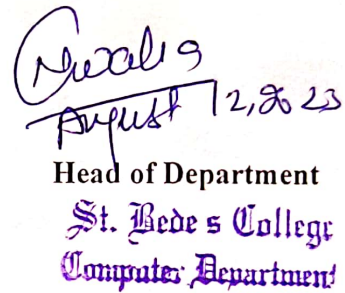 August 12, 2023
Head of Department
St. Bede s College
Computer Department